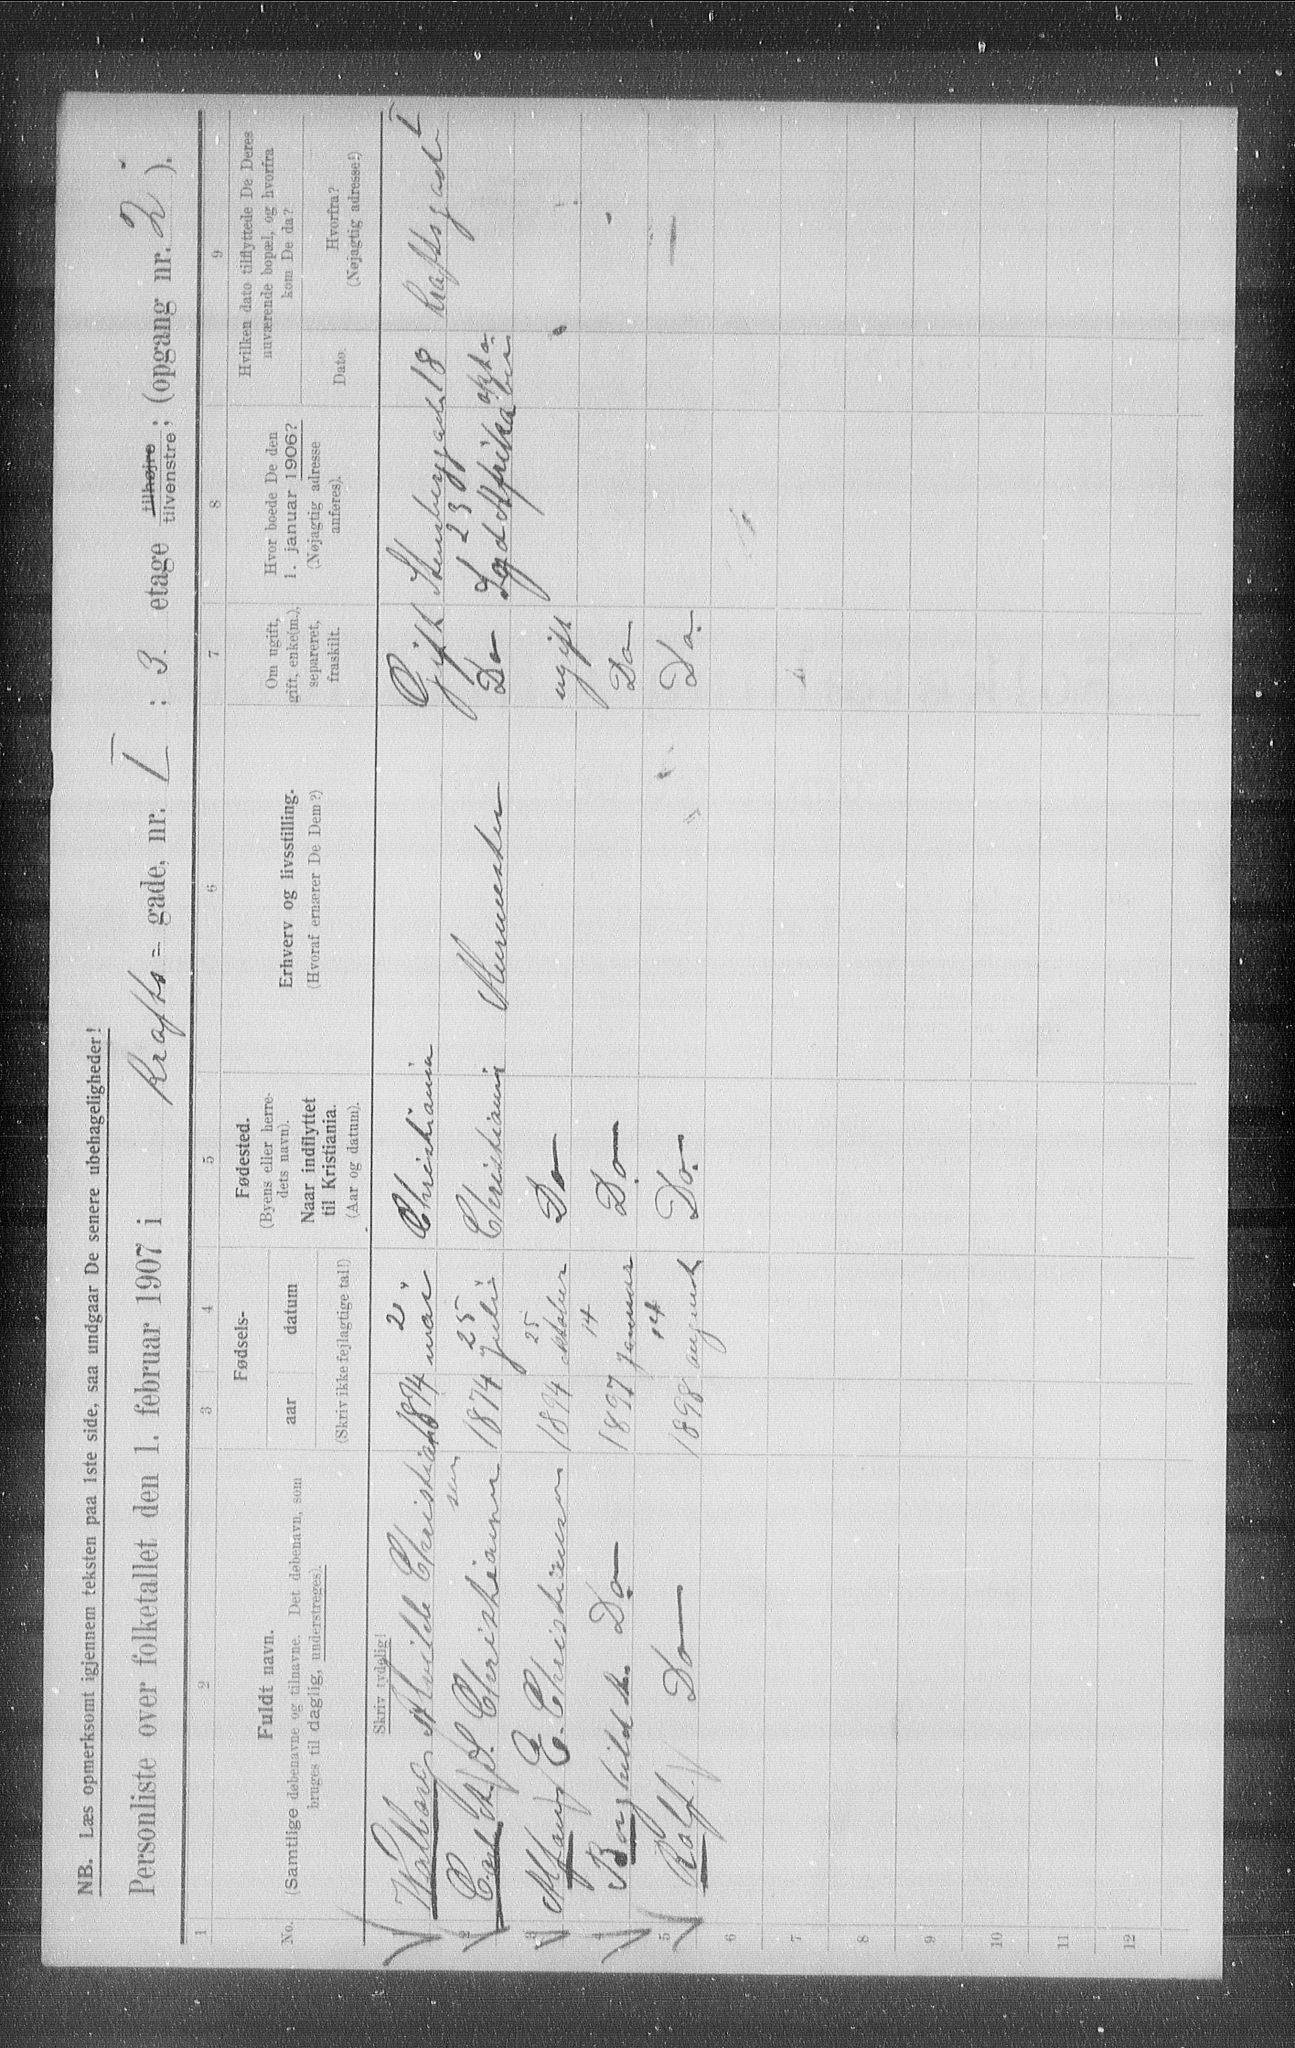 NB. Læs opmerksomt igjennem teksten paa 1ste side, saa undgaar De senere ubehageligheder!
Personliste over folketallet den 1. februar 1907 i Krafts = gade, nr. I ; 3. etage tilhøjre tilvenstre; (opgang nr. 2 ).
1 2 3 4 5 6 7 8 9
No.
Fuldt navn.
(Samtlige døbenavne og tilnavne. Det døbenavn, som
bruges til daglig, understreges).
Fødsels-
aar datum
(Skriv ikke fejlagtige tal!)
Fødested.
(Byens eller herre-
dets navn).
Naar indflyttet
til Kristiania.
(Aar og datum).
Erhverv og livsstilling.
(Hvoraf ernærer De Dem?)
Om ugift,
gift, enke(m.),
separeret,
fraskilt.
Hvor boede De den
1. januar 1906?
(Nøjagtig adresse
anføres).
Hvilken dato tilflyttede De Deres
nuværende bopæl, og hvorfra
kom De da?
Dato.
Hvorfra?
(Nøjagtig adresse!)
Skriv tydelig!
1 Walborg Alvilde Christiansen 1874 2 mai Christiania Gift Stensberggade 18 Kraftsgade I
2 Carl S. Christiansen 1874 25 juli Christiania Murmester Do 23 Syd Afrika
3 E. Christiansen 1894 25 oktober Do ugift
4 Borghild Do 1897 14 januar Do Do
5 Rolf Do 1898 14 august Do. Do.
6
7
8
9
10
11
12